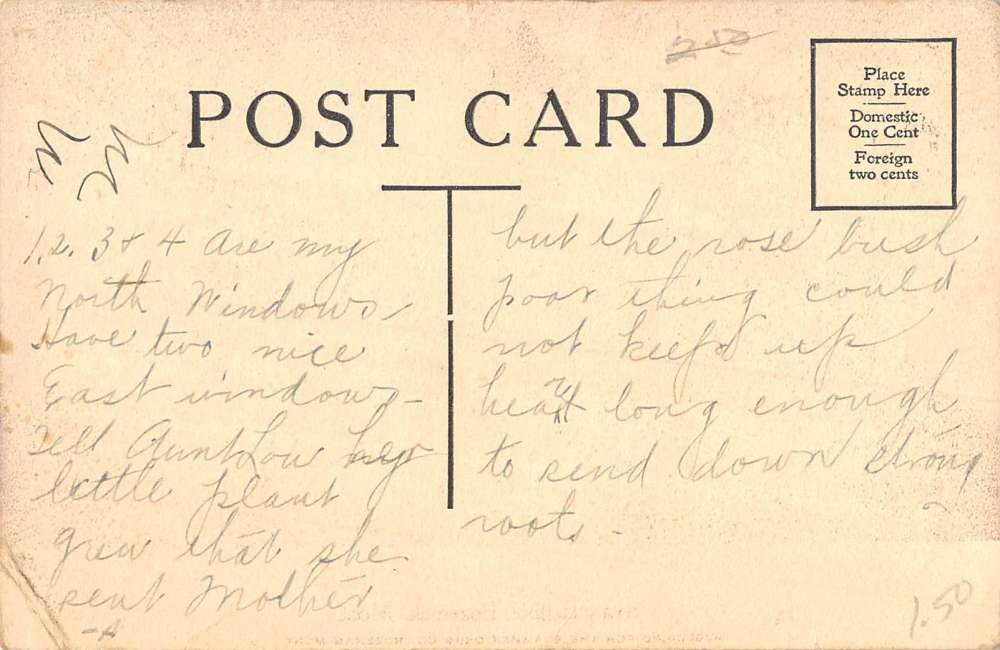 POST CARD
Place
Stamp Here
Domestic
One Cent
Foreign
two cents
1, 2, 3 & 4 are my
North Windows
Have two nice
East windows -
Tell Aunt Lou her
little plant
grew that she
sent Mother
but the rose bush
poor thing could
not keep up
heart long enough
to send down strong
roots -
1.50